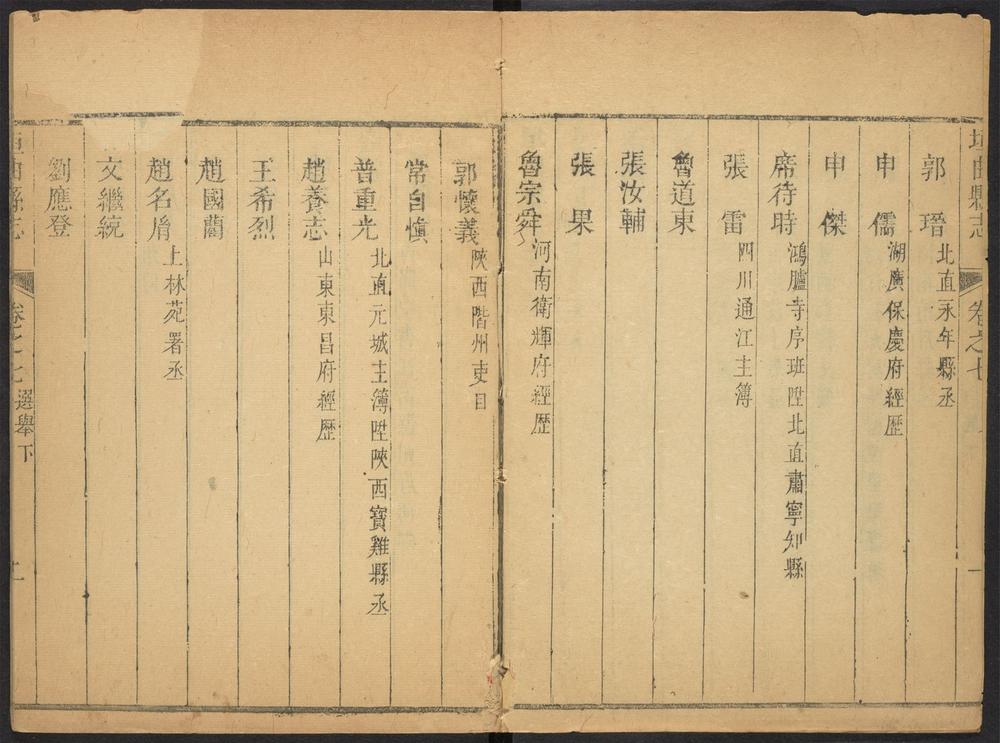 垣曲縣志 卷之七 一
郭瑨 北直永年縣丞
申儒 湖廣保慶府經歷
申傑
席待時 鴻臚寺序班陞北直肅寧知縣
張雷 四川通江主簿
魯道東
張汝輔
張果
魯宗舜 河南衛輝府經歷
郭懷義 陝西階州吏目
常自慎
普重光 北直元城主簿陞陝西寶雞縣丞
趙養志 山東東昌府經歷
王希烈
趙國藺
趙名脣 上林苑署丞
文繼統
劉應登
垣曲縣志 卷之七 選舉下 二